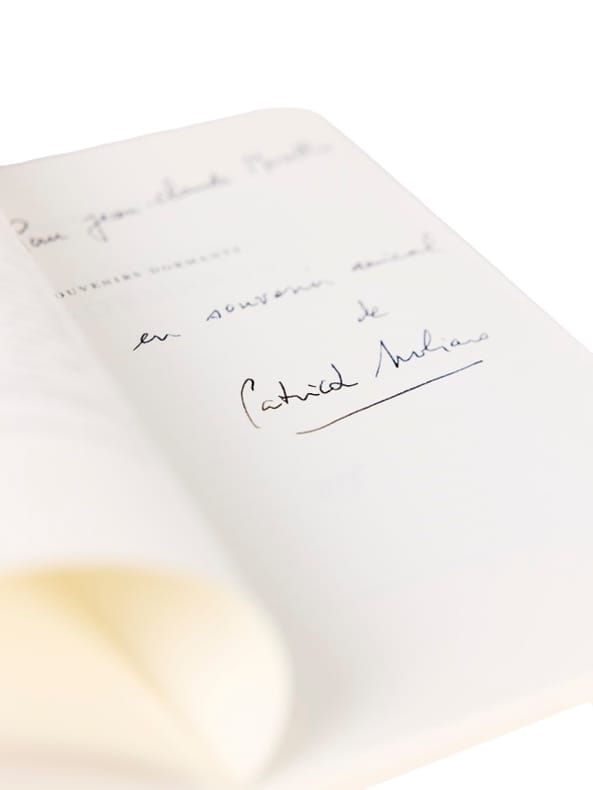 Pour Jean-Claude
SOUVENIRS DORMANTS
en souvenir amical
de
Patrick Modiano